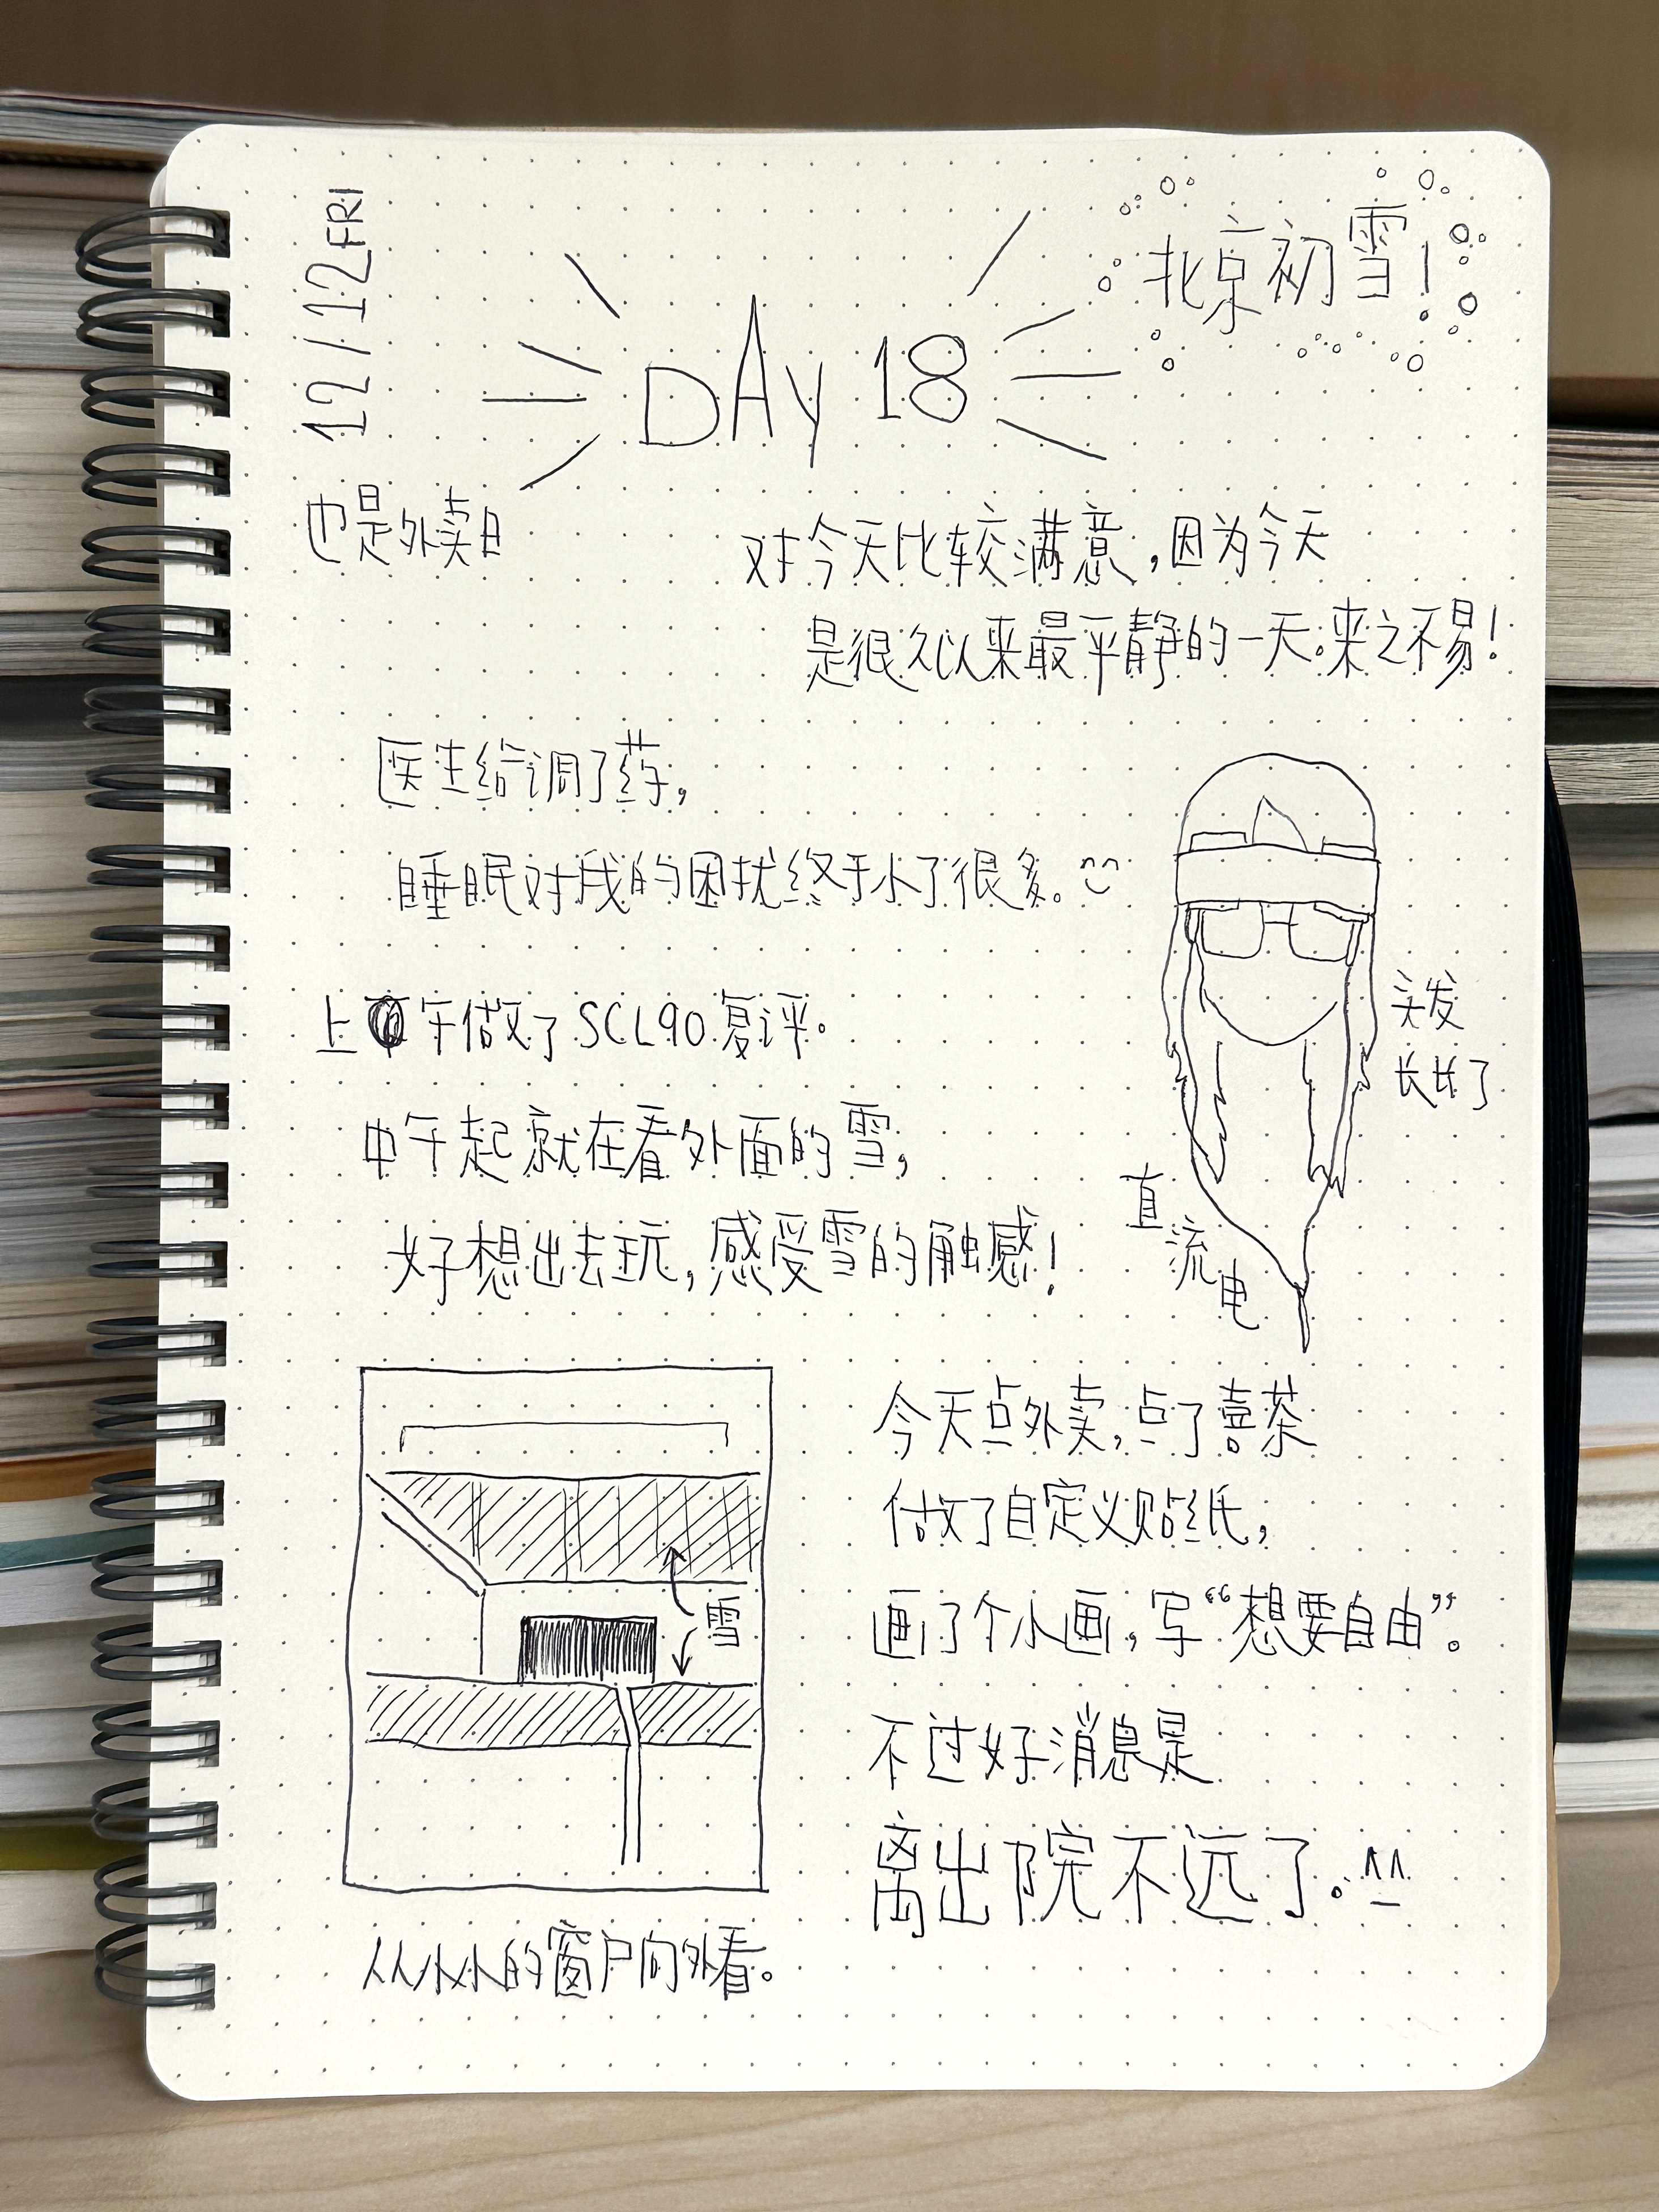 12/12 FRI
北京初雪!
DAY 18
也是外卖日
对今天比较满意,因为今天
是很久以来最平静的一天。来之不易!
医生给调了药,
睡眠对我的困扰终于小了很多。
上午做了SCL90复评。
中午起就在看外面的雪,
好想出去玩,感受雪的触感!
头发
长长了
直流电
雪
从小小的窗户向外看。
今天点外卖,点了喜茶
做了自定义贴纸,
画了个小画,写“想要自由”。
不过好消息是
离出院不远了。^^